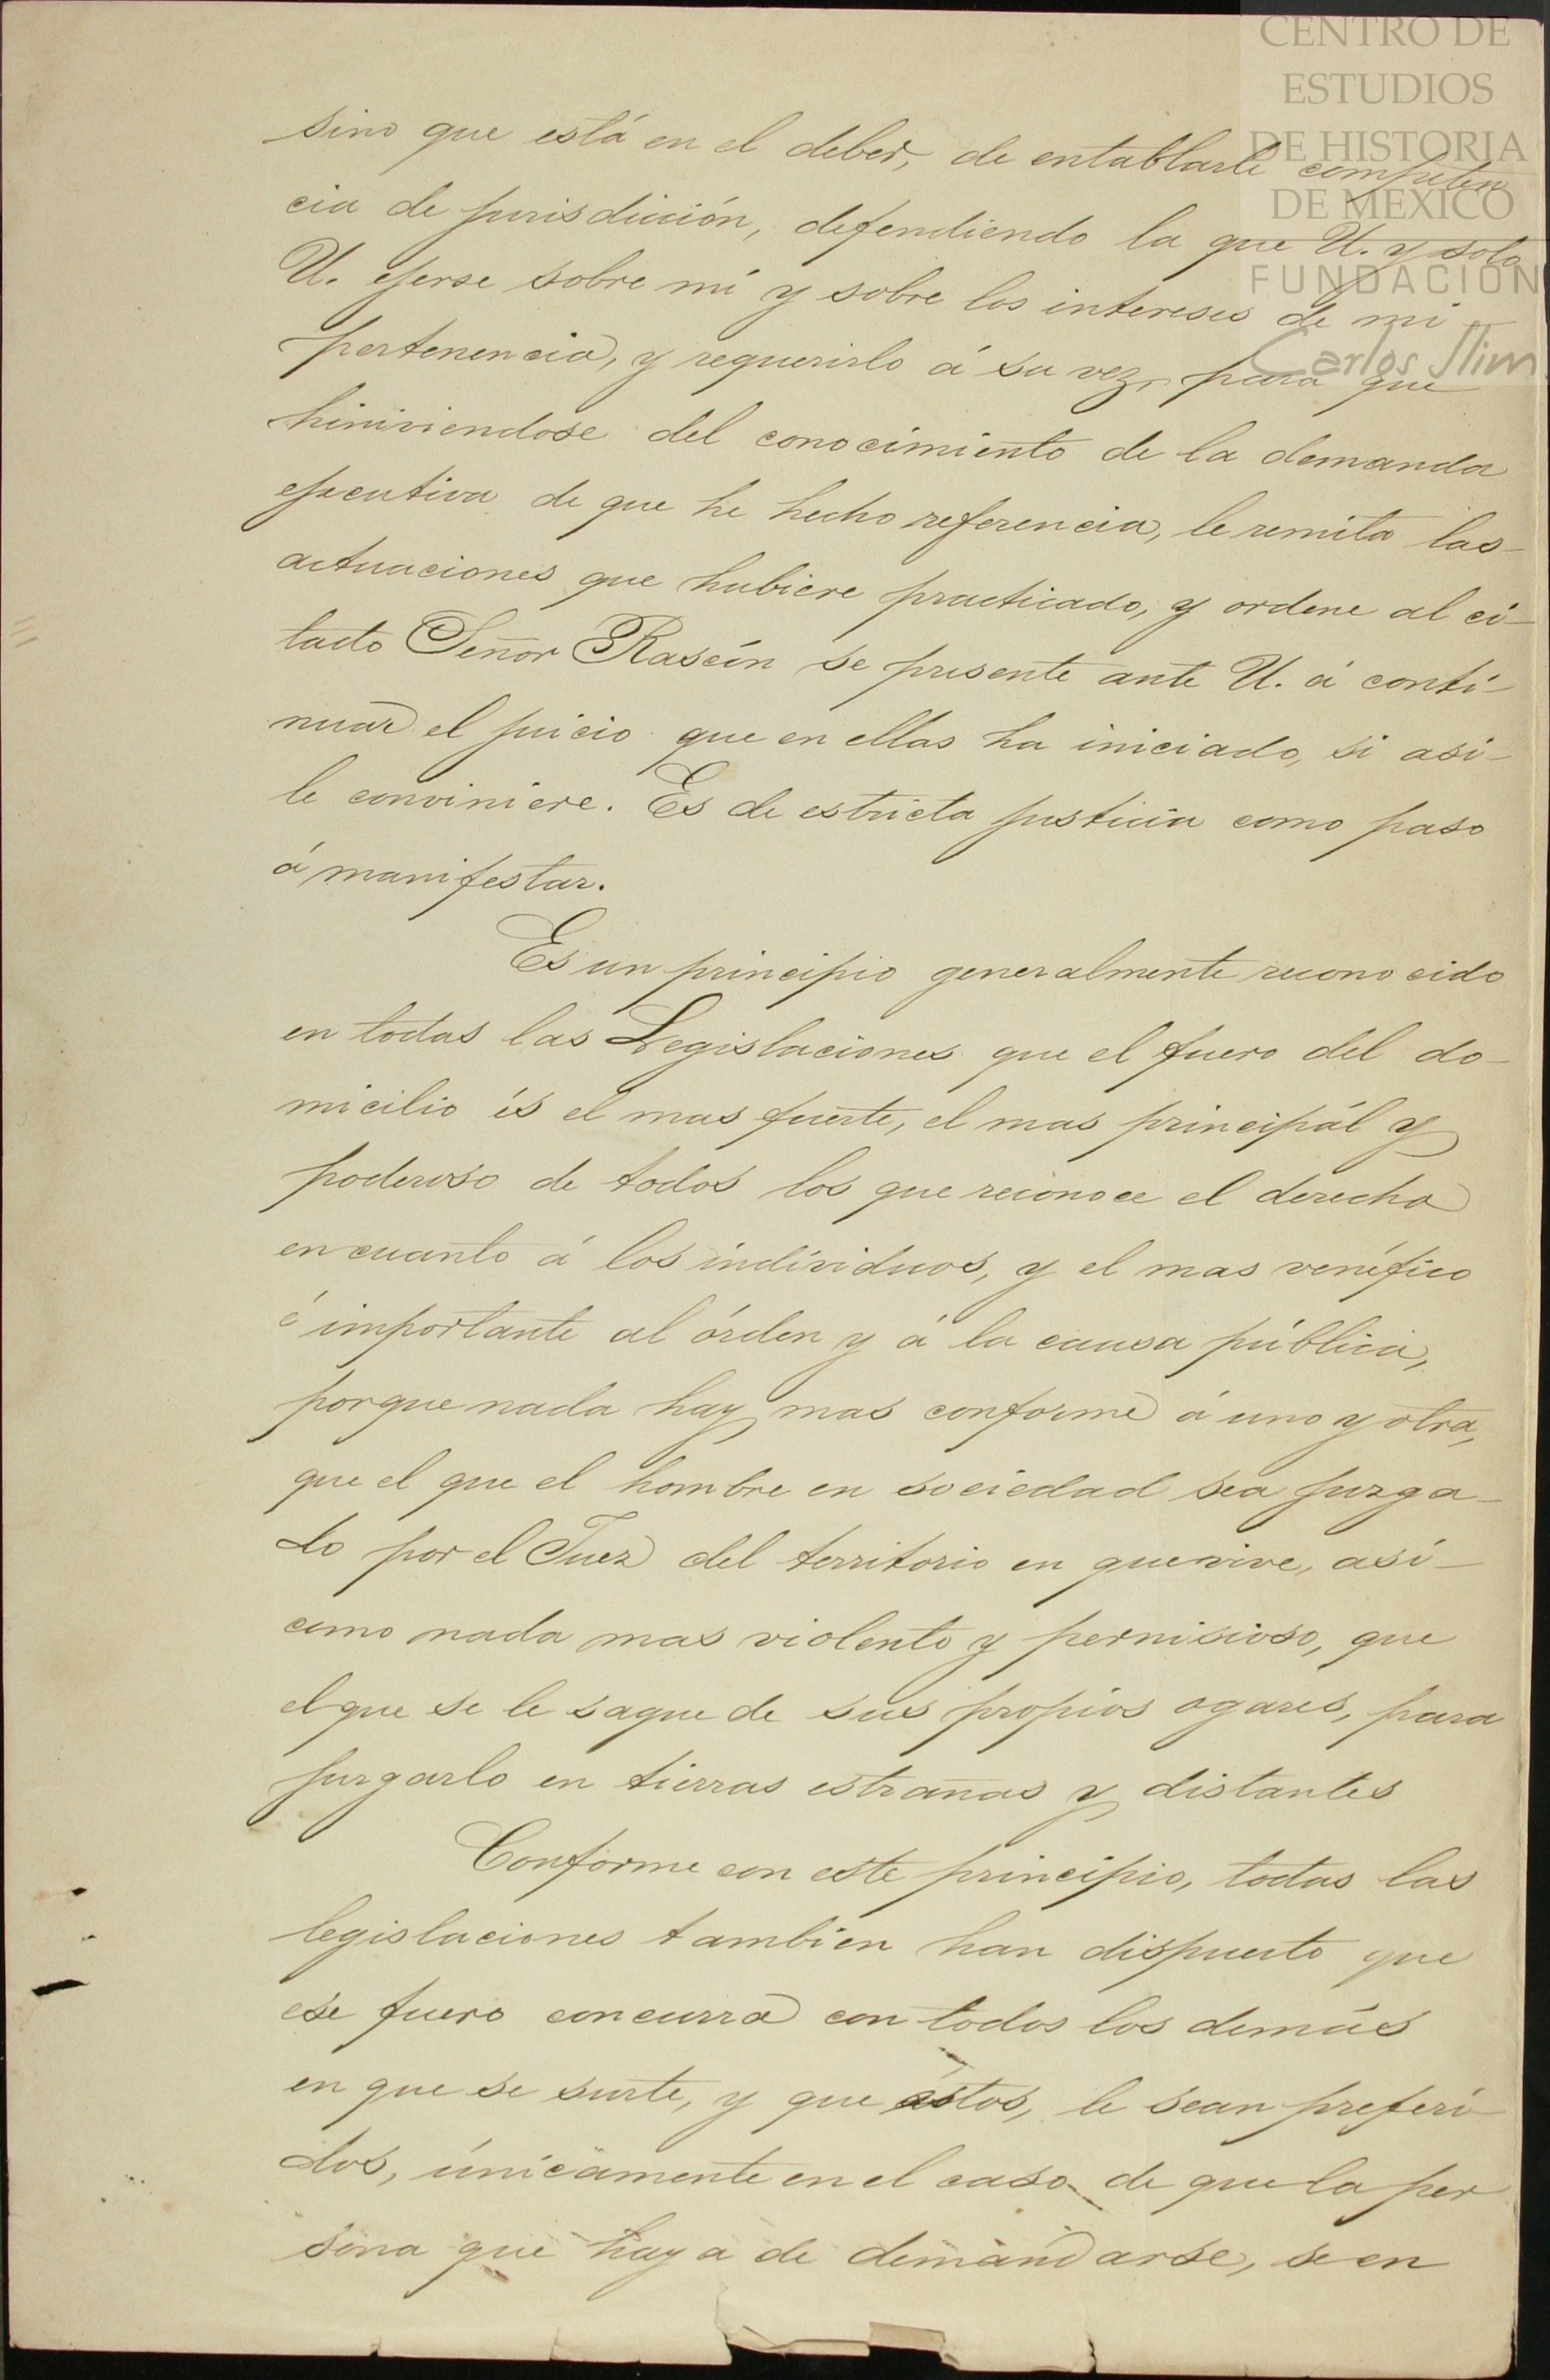 CENTRO DE
ESTUDIOS
DE HISTORIA
DE MEXICO
FUNDACION
Carlos Slim
sino que está en el deber, de entablarle competen
cia de jurisdicción, defendiendo la que U. y solo
U. ejerse sobre mí y sobre los intereses de mi
pertenencia, y requerirlo á su vez, para que
hiniviendose del conocimiento de la demanda
ejecutiva de que he hecho referencia, le remita las
actuaciones que hubiere practicado, y ordene al ci-
tado Señor Rascón se presente ante U. á conti-
nuar el juicio que en ellas ha iniciado, si asi-
le conviniere. Es de estricta justicia como paso
á manifestar.
Es un principio generalmente reconocido
en todas las Legislaciones que el fuero del do-
micilio és el mas fuerte, el mas principál y
poderoso de todos los que reconoce el derecho
en cuanto á los individuos, y el mas venéfico
é importante al órden y á la causa pública,
porque nada hay mas conforme á uno y otra,
que el que el hombre en sociedad sea juzga-
do por el Juez del territorio en que vive, así-
como nada mas violento y pernisioso, que
el que se le saque de sus propios ogares, para
juzgarlo en tierras estrañas y distantes
Conforme con este principio, todas las
legislaciones tambien han dispuesto que
ese fuero concurra con todos los demás
en que se surte, y que éstos, le sean preferi
dos, únicamente en el caso de que la per
sona que haya de demandarse, se en